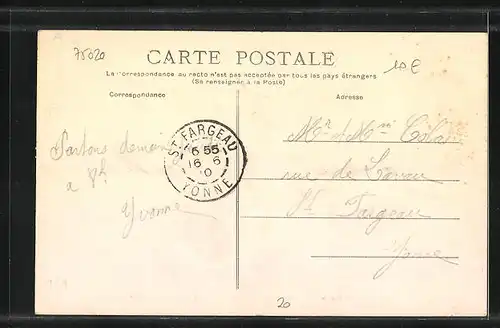 75020
10 €
CARTE POSTALE
La correspondance au recto n'est pas acceptée par tous les pays étrangers
(Se renseigner à la Poste)
Correspondance
Adresse
ST FARGEAU
6 55
16 6
10
YONNE
Partons demain
a 8h
Yvonne
Mr et Mme
rue de
St Fargeau
Yonne
20